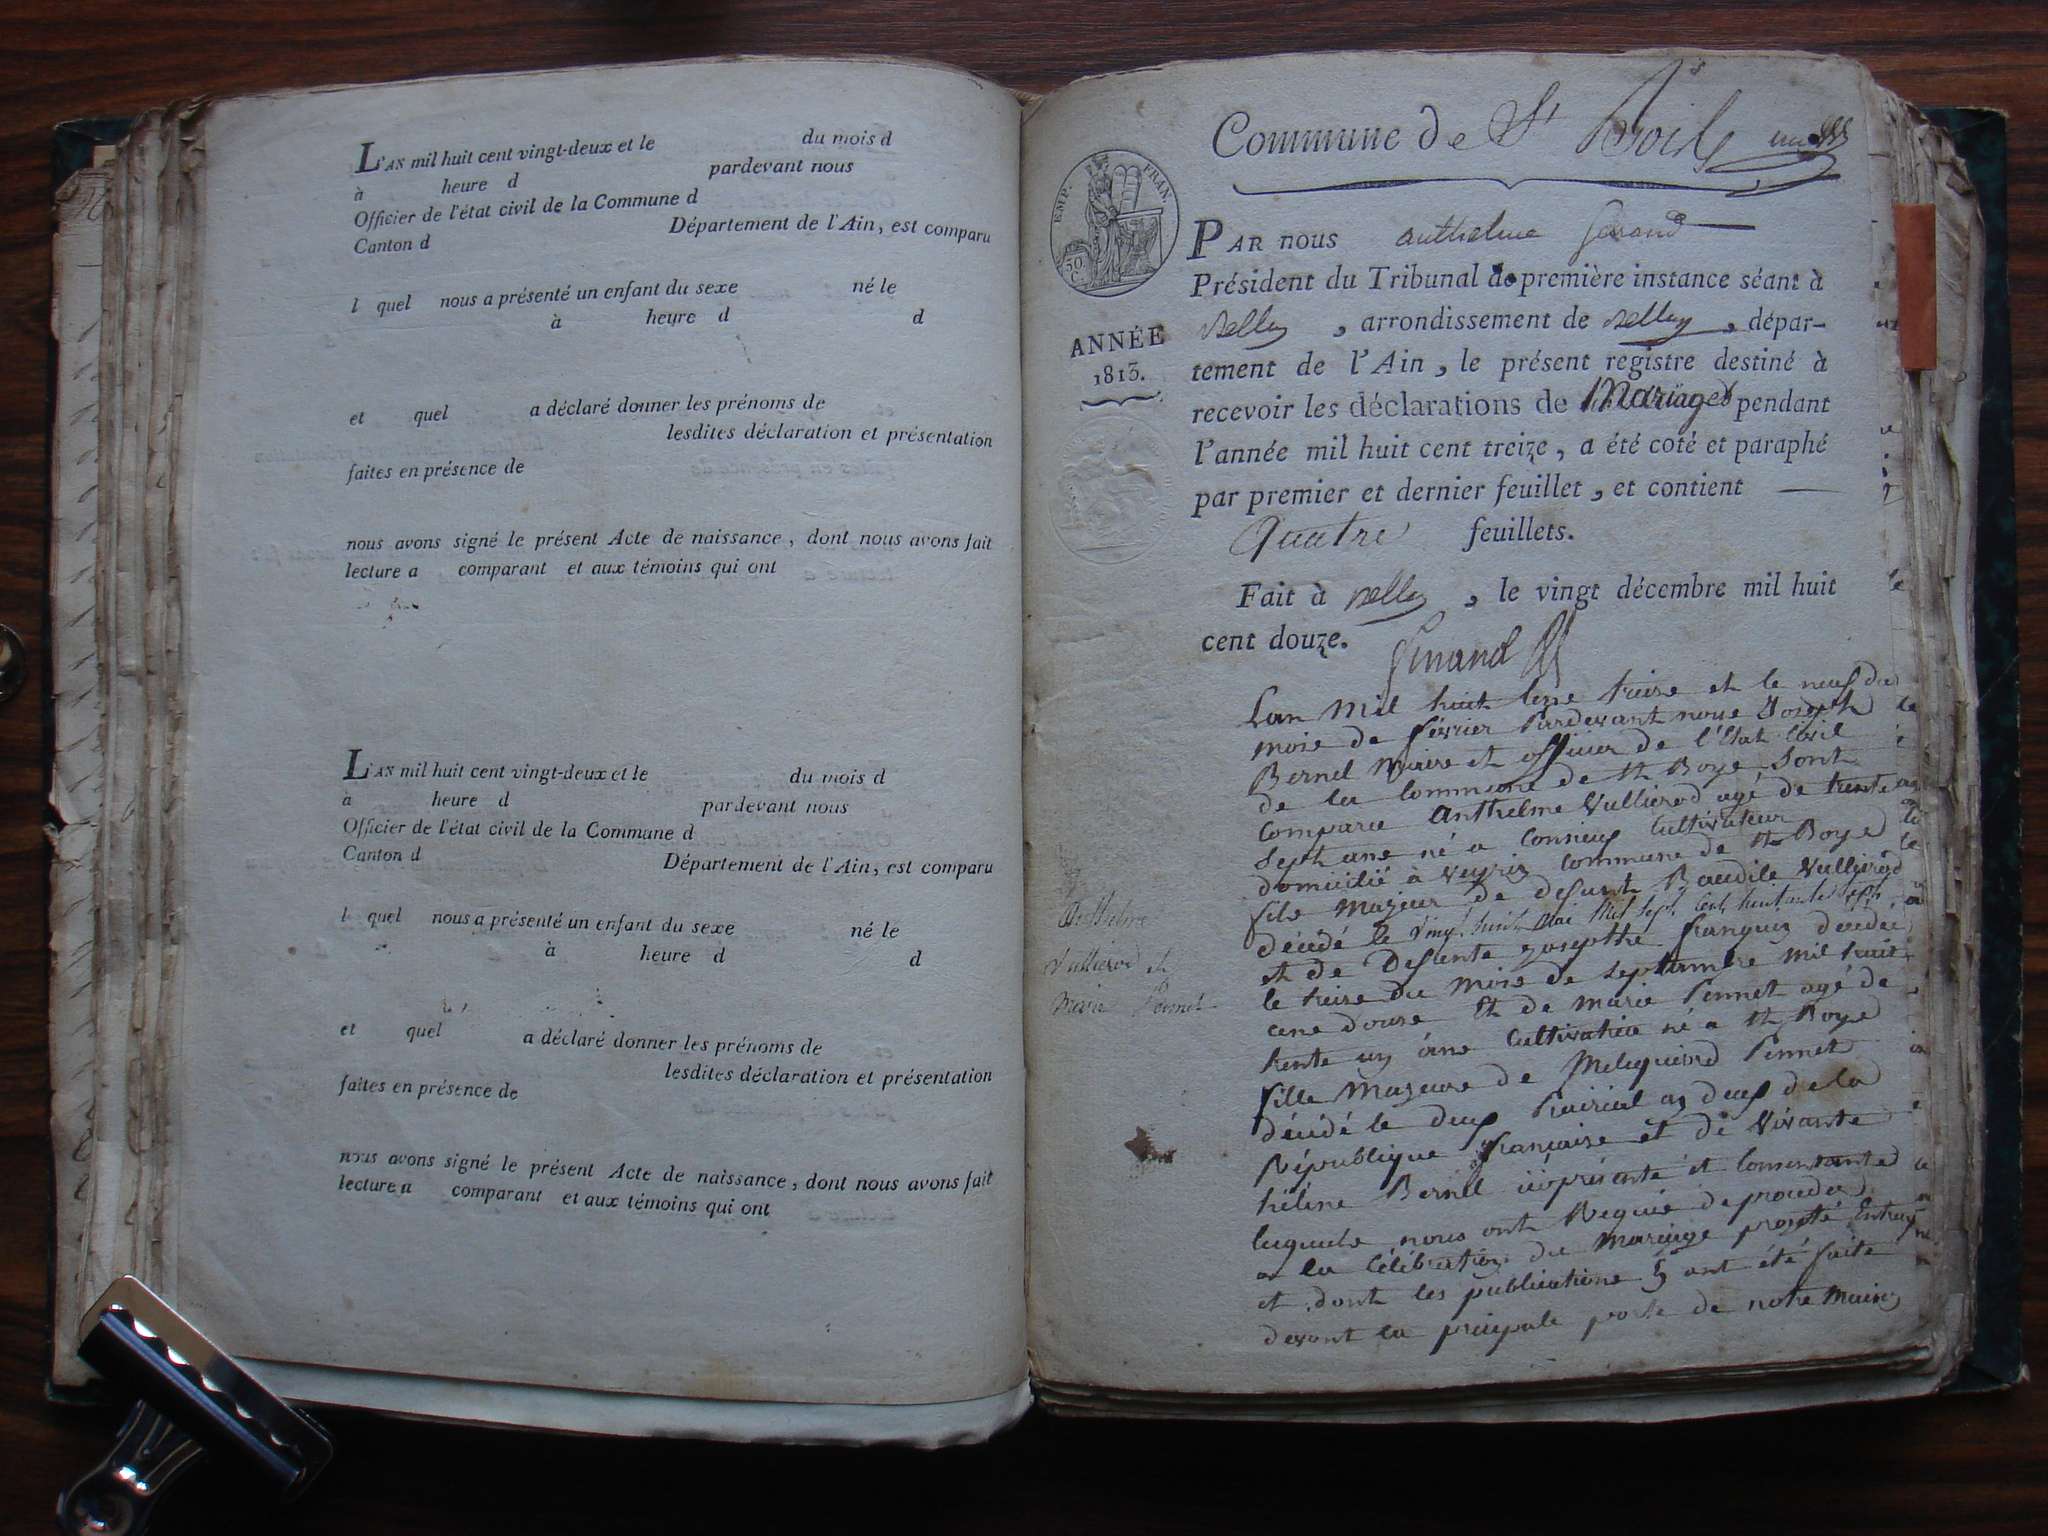 L'AN mil huit cent vingt-deux et le du mois d
à heure d pardevant nous
Officier de l'état civil de la Commune d
Canton d Département de l'Ain, est comparu
l quel nous a présenté un enfant du sexe né le
à heure d d
et quel a déclaré donner les prénoms de
lesdites déclaration et présentation
faites en présence de
nous avons signé le présent Acte de naissance, dont nous avons fait
lecture a comparant et aux témoins qui ont
L'AN mil huit cent vingt-deux et le du mois d
à heure d pardevant nous
Officier de l'état civil de la Commune d
Canton d Département de l'Ain, est comparu
l quel nous a présenté un enfant du sexe né le
à heure d d
et quel a déclaré donner les prénoms de
lesdites déclaration et présentation
faites en présence de
nous avons signé le présent Acte de naissance, dont nous avons fait
lecture a comparant et aux témoins qui ont
Commune de St
EMP. FRAN.
50 C.
ANNÉE
1813.
PAR nous Anthelme
Président du Tribunal de première instance séant à
Belley, arrondissement de Belley, dépar-
tement de l'Ain, le présent registre destiné à
recevoir les déclarations de Mariages pendant
l'année mil huit cent treize, a été coté et paraphé
par premier et dernier feuillet, et contient
Quatre feuillets.
Fait à Belley, le vingt décembre mil huit
cent douze.
Lan Mil huit Cent treize et le neuf du
mois de février Pardevant nous Joseph
Bernel Maire et officier de l'Etat Civil
de la Commune de St Boye Sont
Comparue Anthelme Vullierod agé de trente
Sept ans né a Conzieu Cultivateur
domicilié à Veyrin Commune de St Boye
fils Majeur de defunt Baudile Vullierod
décédé le Vingt huit Mai Mil Sept Cent huitante Sept
et de Defunte Josephte françois décédée
le treise du Mois de Septembre Mil huit
cent douse Et de Marie Pennet agé de
trente un ans Cultivatrice né a St Boye
fille Majeure de Pennet
décédé le deux Prairial an deux de la
République française et de Vivante
héléne Bernel ici présente et Consentante
Laquele nous ont Requie de proceder
a la Célébration du Mariage projeté Entreux
et dont les publications ont été faite
devant la principale porte de notre Mairie
Anthelme
Vullierod et
Marie Pennet